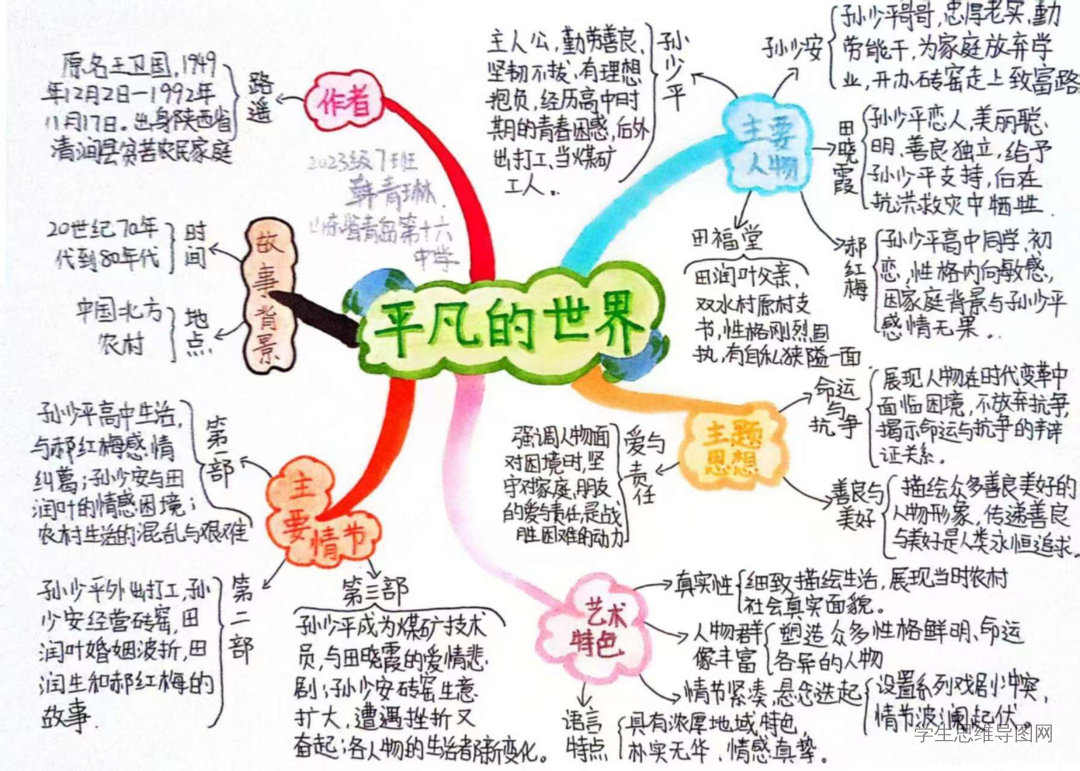 平凡的世界
作者
路遥
原名王卫国,1949
年12月2日—1992年
11月17日。出身陕西省
清涧县贫苦农民家庭
2023级7班
韩青琳
山东省青岛第十六
中学
故事背景
时间
20世纪70年
代到80年代
地点
中国北方
农村
主要情节
第一部
孙少平高中生活,
与郝红梅感情
纠葛;孙少安与田
润叶的情感困境;
农村生活的混乱与艰难
第二部
孙少平外出打工,孙
少安经营砖窑,田
润叶婚姻波折,田
润生和郝红梅的
故事.
第三部
孙少平成为煤矿技术
员,与田晓霞的爱情悲
剧;孙少安砖窑生意
扩大,遭遇挫折又
奋起;各人物的生活都新变化。
主要
人物
孙少平
主人公,勤劳善良,
坚韧不拔,有理想
抱负,经历高中时
期的青春困惑,后外
出打工,当煤矿
工人。
孙少安
孙少平哥哥,忠厚老实,勤
劳能干,为家庭放弃学
业,开办砖窑走上致富路
田晓霞
孙少平恋人,美丽聪
明、善良独立,给予
孙少平支持,后在
抗洪救灾中牺牲.
郝红梅
孙少平高中同学、初
恋,性格内向敏感,
因家庭背景与孙少平
感情无果。
田福堂
田润叶父亲,
双水村原村支
书,性格刚烈固
执,有自私狭隘一面
主题
思想
命运
与
抗争
展现人物在时代变革中
面临困境,不放弃抗争,
揭示命运与抗争的辩
证关系。
爱与责任
强调人物面
对困境时,坚
守对家庭,朋友
的爱与责任,是战
胜困难的动力
善良与
美好
描绘众多善良美好的
人物形象,传递善良
与美好是人类永恒追求。
艺术
特色
真实性
细致描绘生活,展现当时农村
社会真实面貌。
人物群
像丰富
塑造众多性格鲜明、命运
各异的人物
情节紧凑,悬念迭起
设置系列戏剧冲突,
情节波澜起伏。
语言
特点
具有浓厚地域特色,
朴实无华,情感真挚。
学生思维导图网